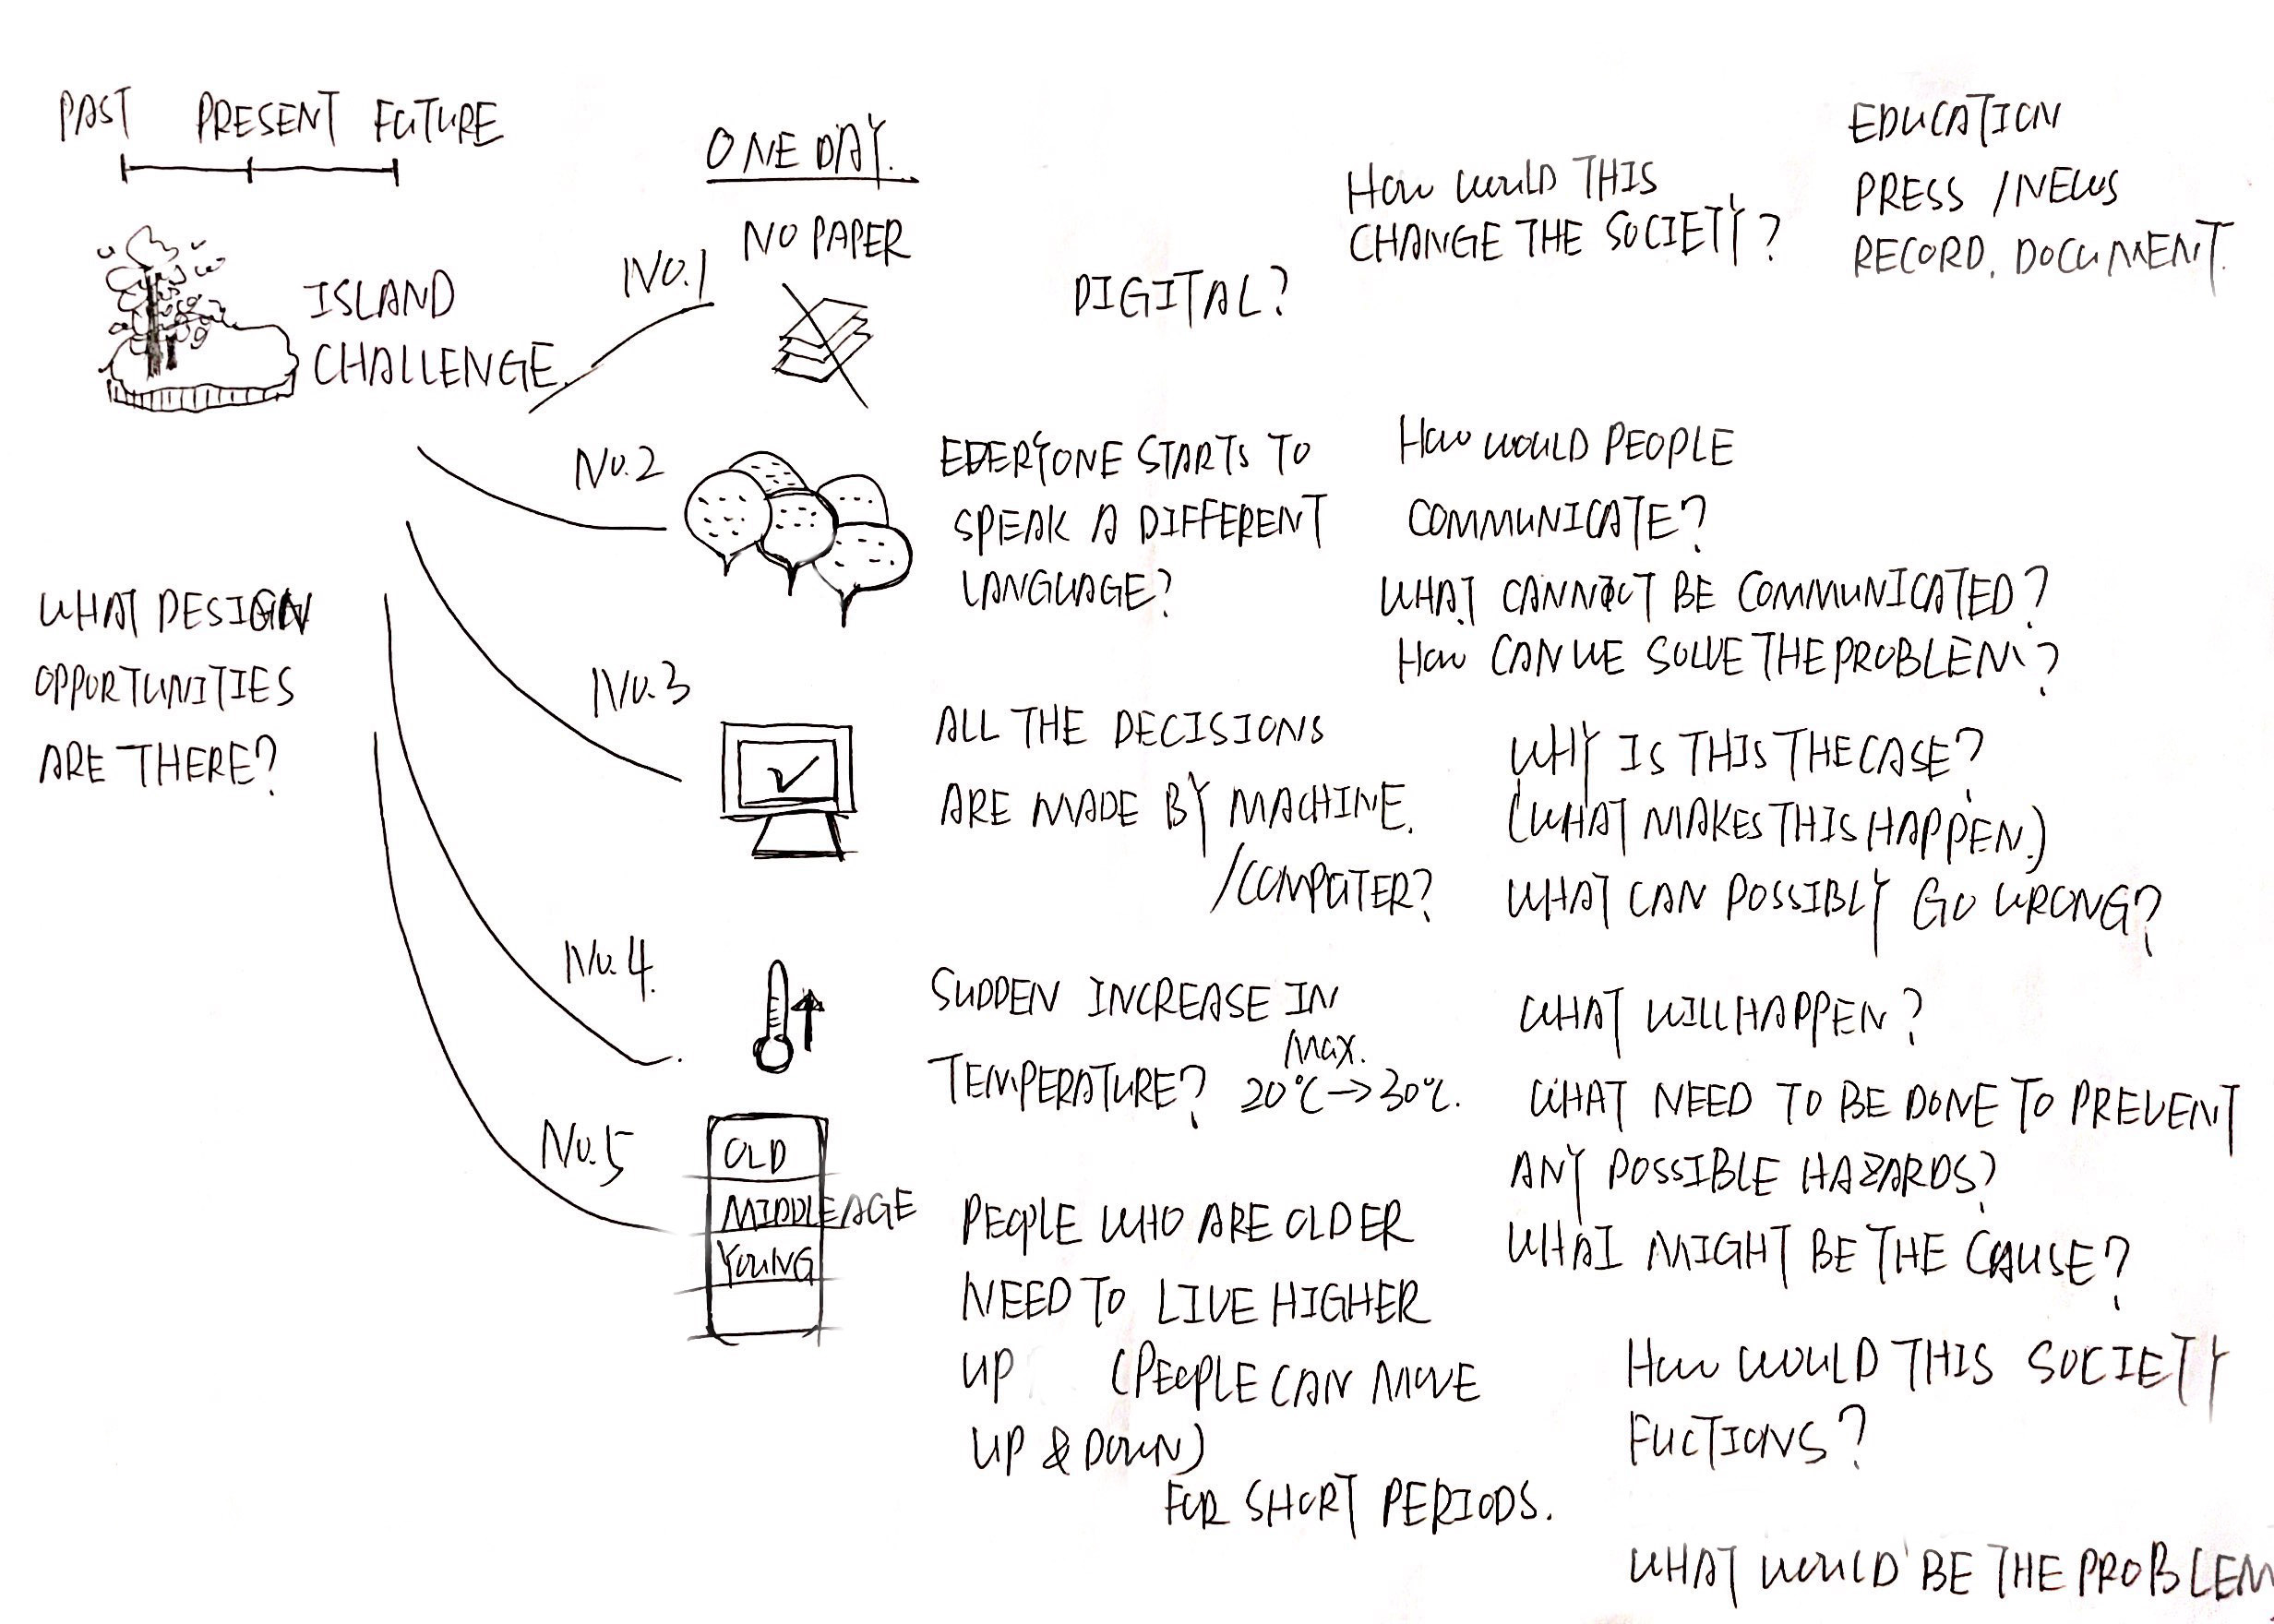 PAST PRESENT FUTURE
ISLAND
CHALLENGE.
WHAT DESIGN
OPPORTUNITIES
ARE THERE?
ONE DAY.
No.1
NO PAPER
DIGITAL?
HOW WOULD THIS
CHANGE THE SOCIETY?
EDUCATION
PRESS / NEWS
RECORD. DOCUMENT.
No.2
EVERYONE STARTS TO
SPEAK A DIFFERENT
LANGUAGE?
HOW WOULD PEOPLE
COMMUNICATE?
WHAT CANNOT BE COMMUNICATED?
HOW CAN WE SOLVE THE PROBLEM?
No.3
ALL THE DECISIONS
ARE MADE BY MACHINE.
/COMPUTER?
WHY IS THIS THE CASE?
(WHAT MAKES THIS HAPPEN.)
WHAT CAN POSSIBLY GO WRONG?
No.4.
SUDDEN INCREASE IN
TEMPERATURE? Max. 20°C → 30°C.
WHAT WILL HAPPEN?
WHAT NEED TO BE DONE TO PREVENT
ANY POSSIBLE HAZARDS?
WHAT MIGHT BE THE CAUSE?
No.5
OLD
MIDDLE AGE
YOUNG
PEOPLE WHO ARE OLDER
NEED TO LIVE HIGHER
UP (PEOPLE CAN MOVE
UP & DOWN)
FOR SHORT PERIODS.
HOW WOULD THIS SOCIETY
FUCTIONS?
WHAT WOULD BE THE PROBLEM